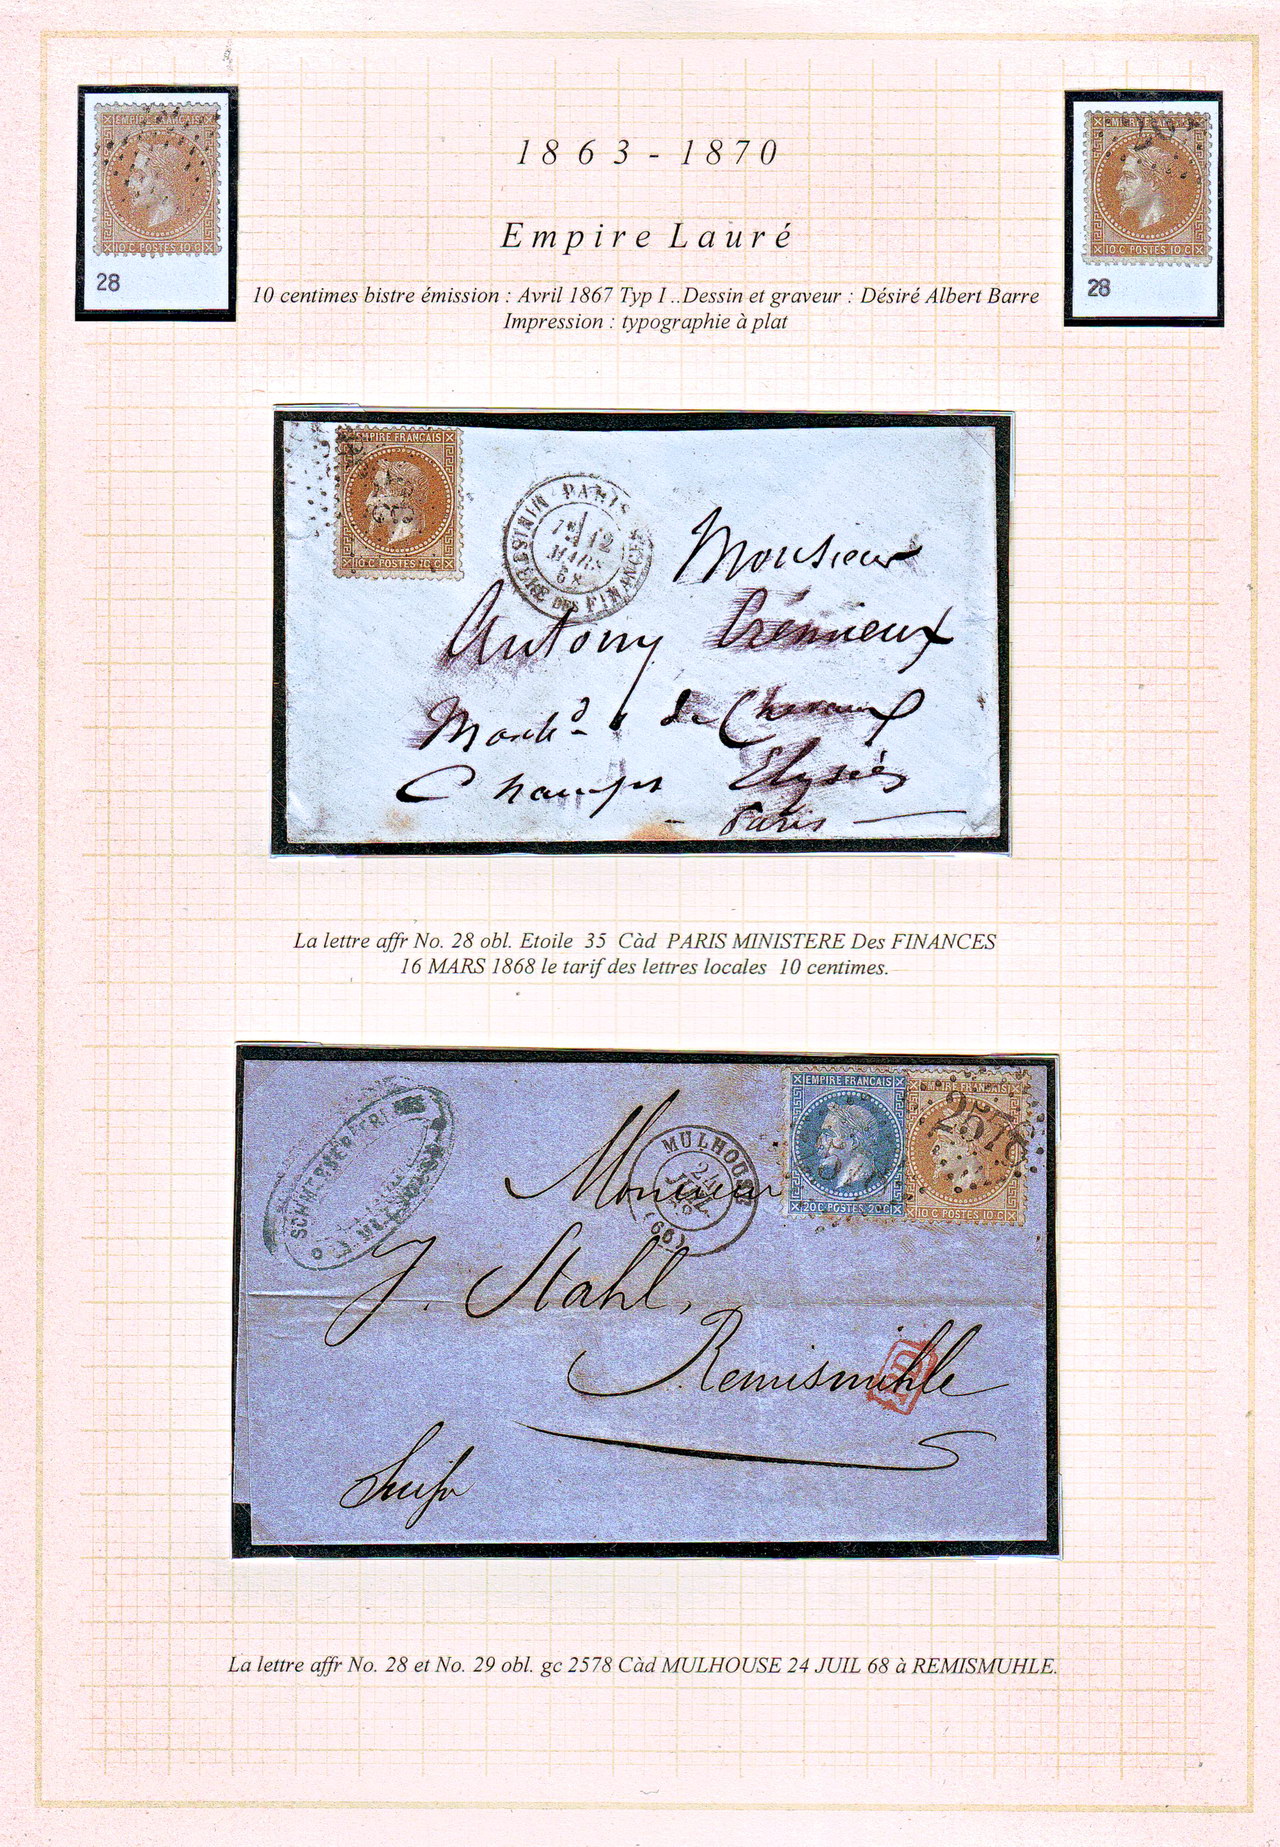 EMPIRE FRANÇAIS
10 C POSTES 10 C
28
EMPIRE FRANÇAIS
10 C POSTES 10 C
28
1863 - 1870
Empire Lauré
10 centimes bistre émission : Avril 1867 Typ I .. Dessin et graveur : Désiré Albert Barre
Impression : typographie à plat
EMPIRE FRANÇAIS
10 C POSTES 10 C
PARIS
12
MARS
68
MINISTERE DES FINANCES
Monsieur
Antony Crémieux
March.d de Chevaux
Champs Elysées
Paris
La lettre affr No. 28 obl. Etoile 35 Càd PARIS MINISTERE Des FINANCES
16 MARS 1868 le tarif des lettres locales 10 centimes.
EMPIRE FRANÇAIS
20 C POSTES 20 C
EMPIRE FRANÇAIS
10 C POSTES 10 C
2578
MULHOUSE
24
JUIL.
68
(66)
MULHOUSE
Monsieur
J. Stahl,
Remismühle
PD
Suisse
La lettre affr No. 28 et No. 29 obl. gc 2578 Càd MULHOUSE 24 JUIL 68 à REMISMUHLE.